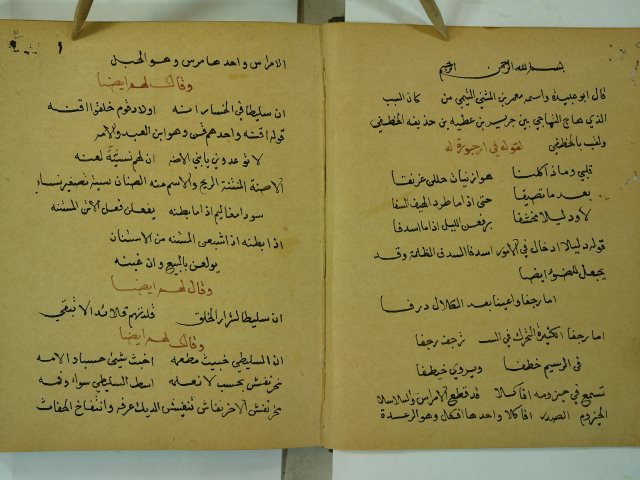 بسم الله الرحمن الرحيم
قال ابو عبيدة واسمه معمر بن المثنى التيمي من كان السبب
الذي هاج التهاجي بين جرير بن عطيه بن حذيفه الخطفي
ولقب بالخطفي لقوله في ارجوزة له
قلبي وما ذا كلفنا هوازنيات حللن غريفا
بعد ما تصيفا حتى اذا ما طرد الهيف السفا
يرفعن لليل اذا ما اسدفا
قوله ادخال في اسدفا السدف الظلمة وقد
يجعل للضوء ايضا
اما رجفا واعينا بعد الكلال ذرفا
اما رجفا الكثيرة التحرك في السير ترجف رجفا
في الرسيم خطفا ويروى خيطفا
تسمع في حيزومه افاكلا قد قطع الامراس والسلاسلا
الحيزوم الصدر افاكلا واحدها افكل وهو الرعدة
الامراس واحدها مرس وهو الحبل
وقال لهم ايضا
ان سليطا في الخسار انه اولاد قوم خلقوا اقنه
قوله اقنه واحدهم قن وهو ابن العبد والامه
لا توعدوني يا بني المصنه ان لهم نسيّة لعنه
الاصنة المنتنة الريح والاسم منه الصنان نسية تصغير نساء
سودا مغاليم اذا ما بطنه يفعلن فعل الاتن المستنه
اذا بطنه اذا شبعن المستنه من الاستنان
يولعن بالبيع وان غبنه
وقال لهم ايضا
ان سليطا لشرار الخلق قلدتهم قلائد الا تبقي
وقال لهم ايضا
ان السليطي خبيث مطعمه اخبث شيئ حسبا والامه
محرنفش بحسب لا نعلمه است السليطي سواء وفمه
محرنفش الاحرنفاش تنفيش الديك عرفه وانتفاخ